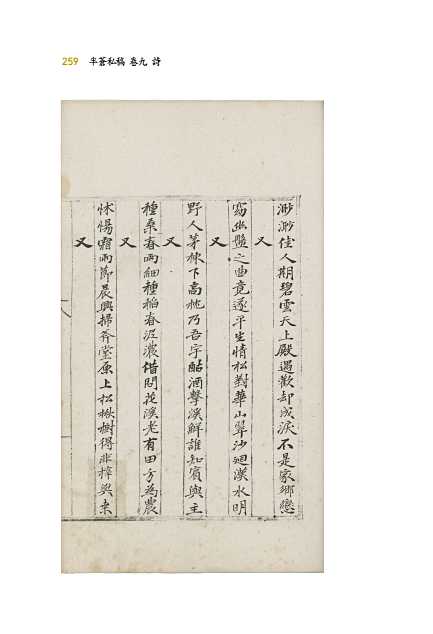 259 半蒼私稿 卷九 詩
渺渺佳人期碧雲天上殿遇歡却成淚不是家鄉戀
又
窈幽盤之曲竟遂平生情松對華山翠沙廻漢水明
又
野人茅棟下高枕乃吾宇酤酒擊溪鮮誰知賓與主
又
種桑春雨細種稻春泥濃借問花溪老有田方為農
又
怵惕霜雨節晨興掃齊堂原上松楸樹得非梓與桒
又